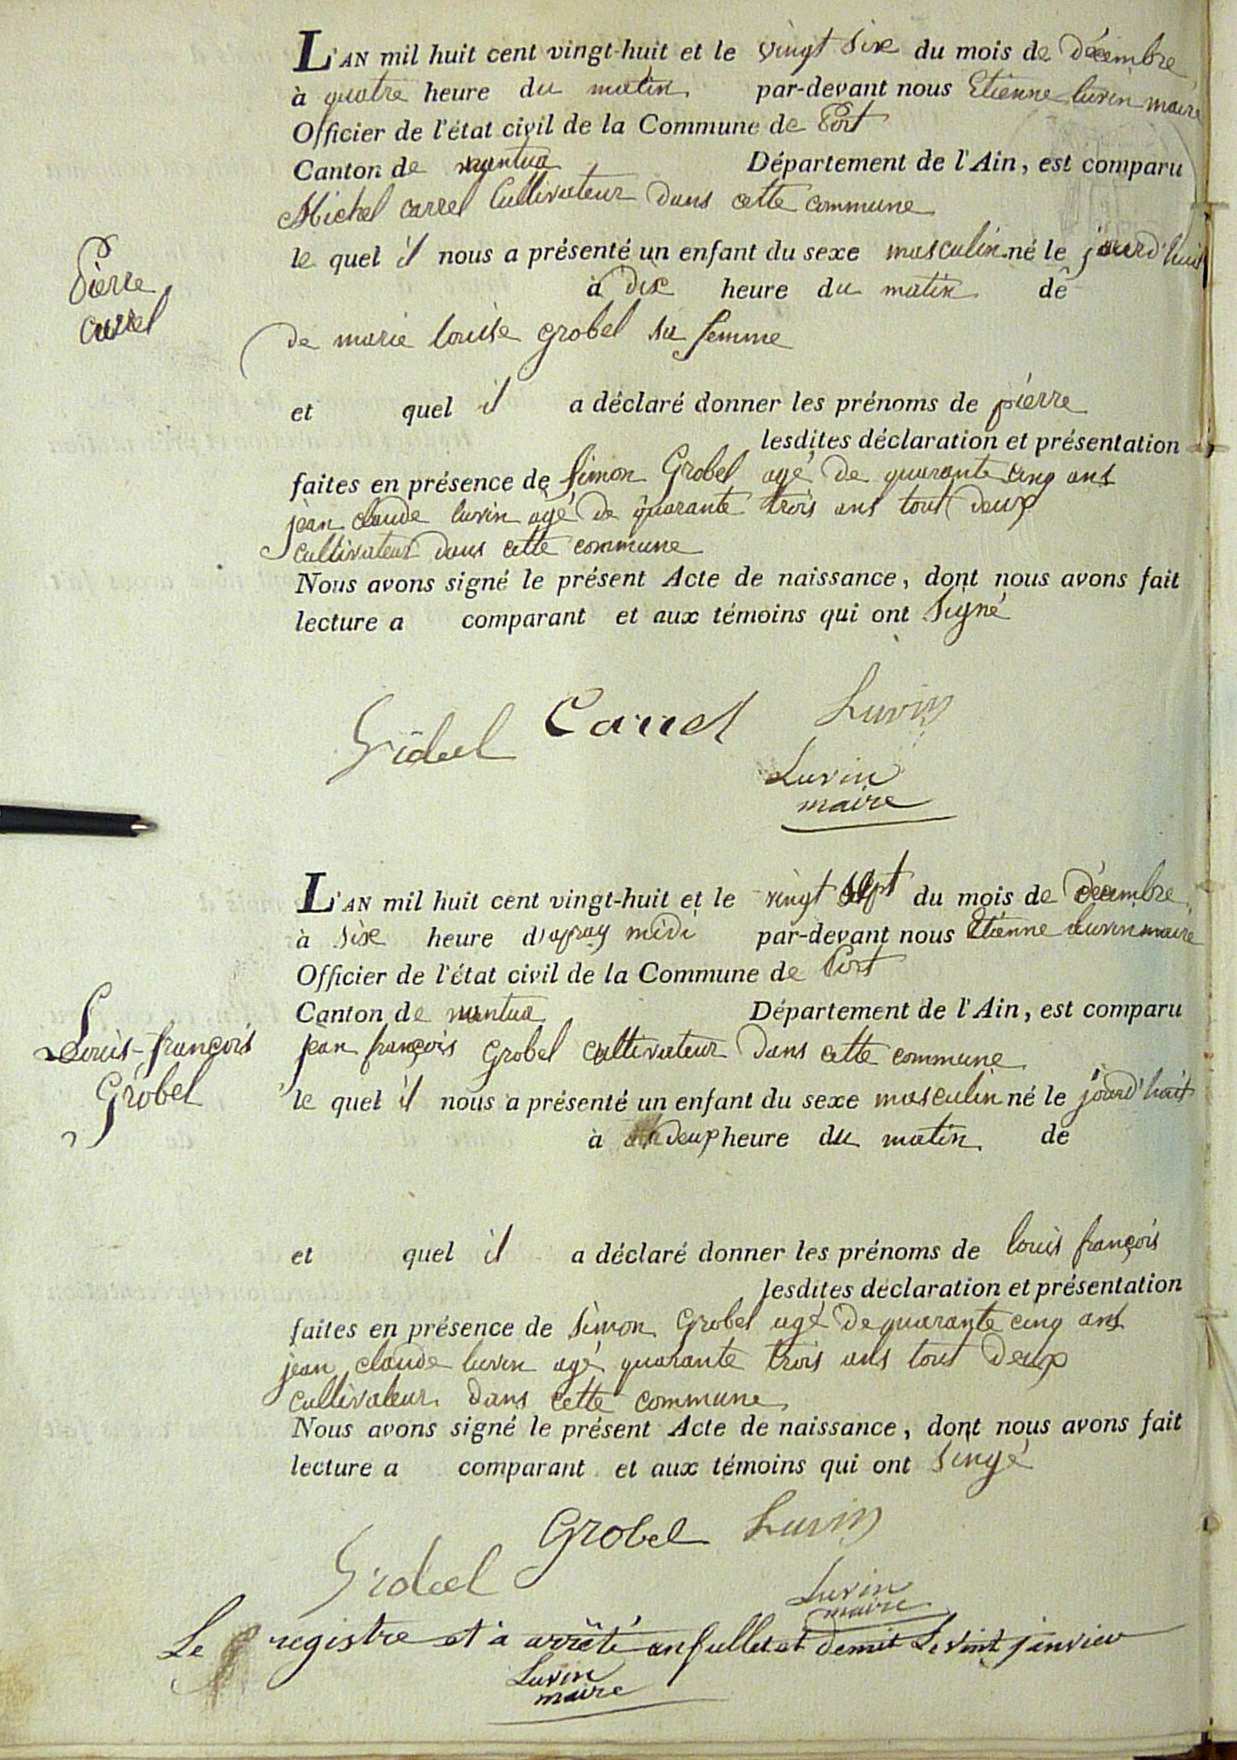 L'AN mil huit cent vingt-huit et le vingt sixe du mois de décembre
à quatre heure du matin par-devant nous Etienne luvin maire
Officier de l'état civil de la Commune de Port
Canton de nantua Département de l'Ain, est comparu
Michel carrel Cultivateur dans cette commune
le quel il nous a présenté un enfant du sexe masculin né le jourd'huit
à dix heure du matin de
de marie louise grobel sa femme
Pierre
carrel
et quel il a déclaré donner les prénoms de pierre
lesdites déclaration et présentation
faites en présence de Simon Grobel agé de quarante cinq ans
jean claude luvin agé de quarante trois ans tout deux
cultivateur dans cette commune
Nous avons signé le présent Acte de naissance, dont nous avons fait
lecture a comparant et aux témoins qui ont signé
Grobel Carrel Luvin
Luvin
maire
L'AN mil huit cent vingt-huit et le vingt sept du mois de décembre
à sixe heure d'apray midi par-devant nous Etienne luvin maire
Officier de l'état civil de la Commune de Port
Canton de nantua Département de l'Ain, est comparu
jean françois Grobel cultivateur dans cette commune
Louis-françois
Grobel
le quel il nous a présenté un enfant du sexe masculin né le jourd'huit
à deux heure du matin de
et quel il a déclaré donner les prénoms de louis françois
lesdites déclaration et présentation
faites en présence de Simon Grobel agé de quarante cinq ans
jean claude luvin agé quarante trois ans tout deux
cultivateur dans cette commune
Nous avons signé le présent Acte de naissance, dont nous avons fait
lecture a comparant et aux témoins qui ont singé
Grobel Luvin
Grobel
Luvin
maire
Le registre et a arrêté an fullet et demit Le vint janvier
Luvin
maire